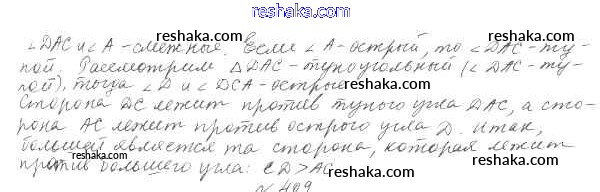 reshaka.com
∠DAC и ∠A - смежные. Если ∠A - острый, то ∠DAC - ту-
пой. Рассмотрим △DAC - тупоугольный (∠DAC - ту-
пой), тогда ∠D и ∠DCA - острые.
Сторона DC лежит против тупого угла DAC, а сто-
рона AC лежит против острого угла D. Итак,
большей является та сторона, которая лежит
против большего угла: CD > AC.
№ 409
reshaka.com
reshaka.com
reshaka.com
reshaka.com